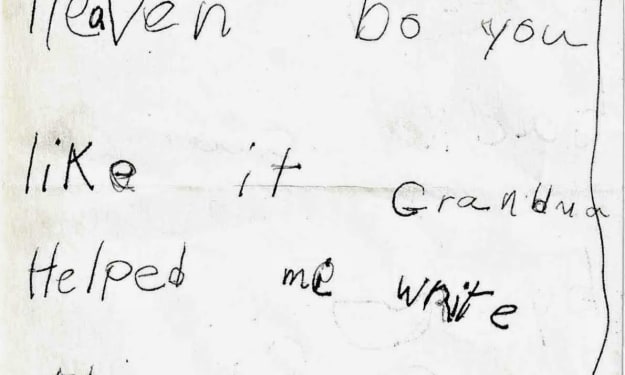 Heaven Do you
like it Grandma
Helped me write